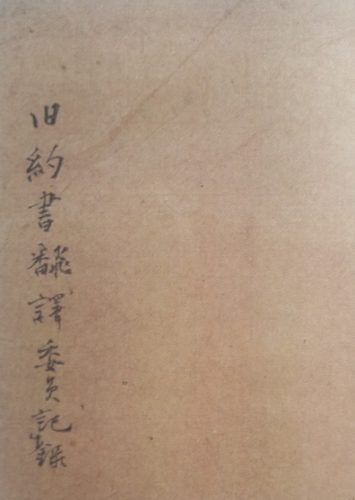 旧約書飜譯委員記録